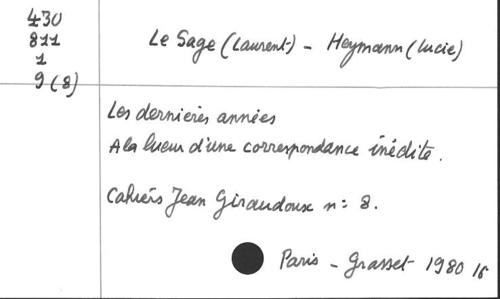 430
811
1
9(8)
Le Sage (Laurent) - Heymann (Lucie)
Les dernières années
A la lueur d'une correspondance inédite.
Cahiers Jean Giraudoux n: 8.
Paris - Grasset 1980 16